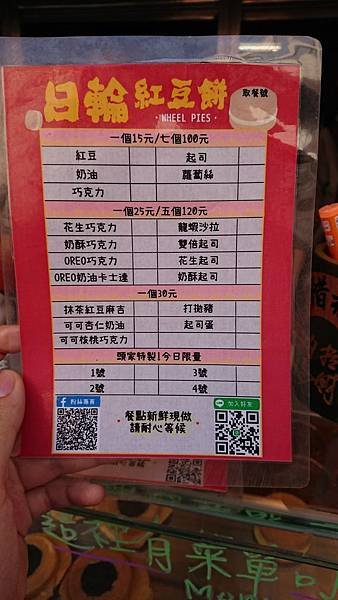 日輪紅豆餅
取餐號
·WHEEL PIES·
一個15元/七個100元
紅豆 起司
奶油 蘿蔔絲
巧克力
一個25元/五個120元
花生巧克力 龍蝦沙拉
奶酥巧克力 雙倍起司
OREO巧克力 花生起司
OREO奶油卡士達 奶酥起司
一個30元
抹茶紅豆麻吉 打拋豬
可可杏仁奶油 起司蛋
可可核桃巧克力
頭家特製!今日限量
1號 3號
2號 4號
粉絲專頁
加入好友
餐點新鮮現做
請耐心等候
這裡有菜單
Menu